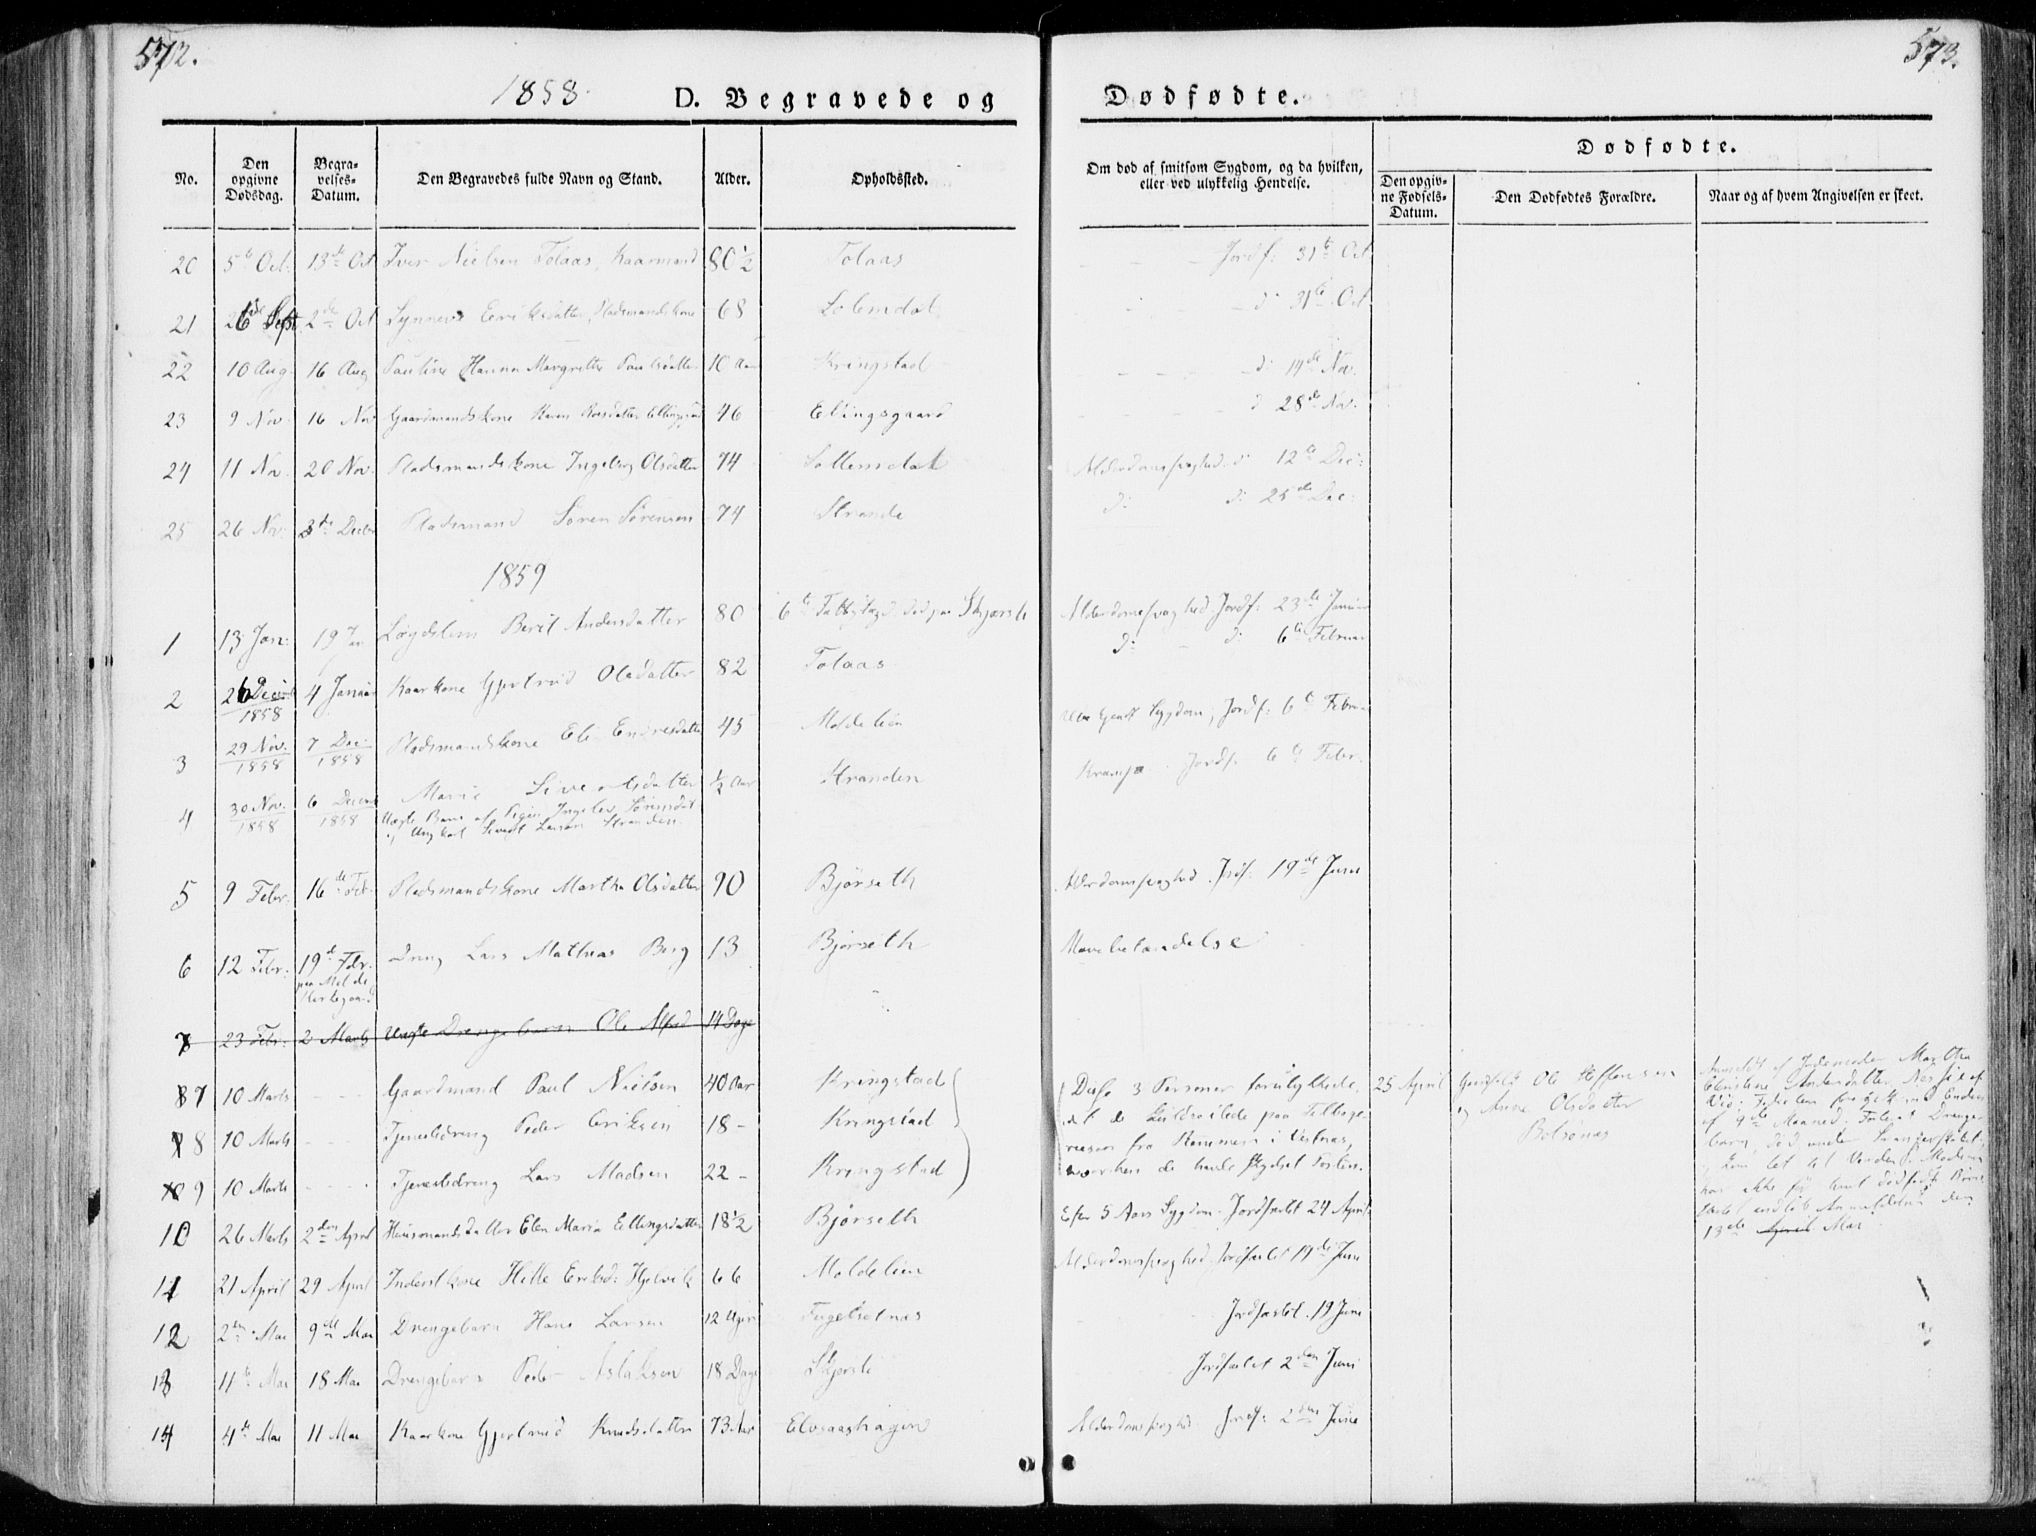 572.
1858
D. Begravede og
No.
Den opgivne Dødsdag.
Begravelses-Datum.
Den Begravedes fulde Navn og Stand.
Alder.
Opholdssted.
20 5te Oct: 13de Oct Iver Nielsen Tolaas, Kaarmand 80½ Tolaas
21 26de Sept 2den Oct Synneve Eriksdatter, Pladsmandskone 68 Solemdal
22 10 Aug 16 Aug Pauline Hanna Margrethe Paulsdatter 10 Aar Kringstad
23 9 Nov. 16 Nov Gaardmandskone Karen 46 Elingsgaard
24 11 Nov. 20 Nov. Pladsmandskone Ingeborg Olsdatter 74 Sollemdal
25 26 Nov: 3die Decbr Pladsmand Søren Sørensen 74 Strande
1859
1 13 Jan: 19 Jan Lægdslem Berit Andersdatter 80 6te død paa Skjørsli
2 26 Decbr 1858 4 Januar Kaarkone Gjertrud Olsdatter 82 Tolaas
3 29 Nov. 1858 7 Dec 1858 Pladsmandskone Eli Endresdatter 45 Moldelien
4 30 Nov. 1858 6 Decem 1858 Marie Sivertsdatter ½ Aar Stranden
Uægte Barn af Pigen Ingebor Sørensdat
og Ungkarl Sivert Larsen Stranden.
5 9 Febr. 16de Feb Pladsmandskone Martha Olsdatter 90 Bjørseth
6 12 Febr. 19de Febr. paa Molde Kirkegaard Dreng Lars Mathias Berg 13 Bjørseth
7 23 Febr. 2 Marts Uægte Drengebarn Ole Alfred 14 Dage
8 7 10 Marts - - - Gaardmand Paul Nielsen 40 Aar Kringstad
9 8 10 Marts - - - Tjenestedreng Peder Eriksen 18 - Kringstad
10 9 10 Marts - - - Tjenestedreng Lars Madsen 22 - Kringstad
10 26 Marts 2den April Huusmandsdatter Elen Maria Ellingsdatter 18½ Bjørseth
11 21 April 29 April Inderstkone Hille Eriksd: Hjelvik 66 Moldelien
12 2den Mai 9de Mai Drengebarn Hans Larsen 12 Uger Fugelsetnes
13 11te Mai 18 Mai Drengebarn Peder Aslaksen 18 Dage Skjørsli
14 4de Mai 11 Mai Kaarkone Gjertrud Knudsdatter 73 Aar Elvsaashagen
573.
Dødfødte.
Om død af smitsom Sygdom, og da hvilken, eller ved ulykkelig Hendelse.
Dødfødte.
Den opgivne Fødsels-Datum.
Den Dødfødtes Forældre.
Naar og af hvem Angivelsen er skeet.
Jordf: 31te Oct
d: 31te Oct
d: 14de Nov.
d 28de Nov.
Alderdomssvaghed d: 12te Dec:
d: d: 25de Dec:
Alderdomssvaghed Jordf: 23de Januar
d: d: 6te Februar
Sygdom, Jordf: 6te Februar
Krampe Jordf. 6te Febr.
Alderdomssvaghed. Jordf: 19de Juni
Mavebetændelse
Disse 3 Personer forulykkede,
idet de kuldseilede paa Tilbage
reisen fra i Vestnes,
hvorhen de havde skydset Posten.
Efter 5 Aars Sygdom. Jordfæstet 24 April
Alderdomssvaghed, Jordfæstet 19de Juni
Jordfæstet. 19 Juni
Jordfæstet 2den Juni
Alderdomssvaghed Jordf: 2den Juni
25 April
Ole
og Anne Olsdatter
Bolsønes
Anmeldt af Jordmoder Martha
Andersdatter
af Maaned: Drenge
barn, død under
Anmeldelsen den
13de April Mai